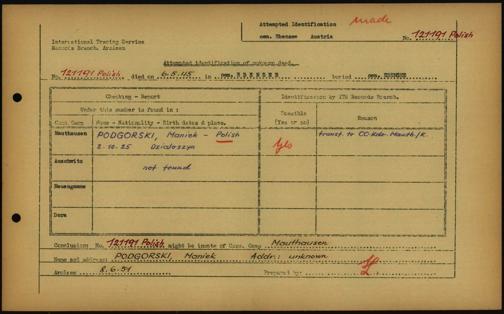 Attempted Identification made
cem. Ebensee Austria
No. 121191 Polish
International Tracing Service
Records Branch, Arolsen
Attempted identification of unknown dead.
No. 121191 Polish died on 6.5.45 in cem. EBENSEE buried cem. EBENSEE
Checking - Report Identification by ITS Records Branch.
Under this number is found in :
Conc. Camp Name - Nationality - Birth dates & place. Possible (Yes or no) Reason
Mauthausen PODGORSKI, Maniek - Polish Yes transf. to CC Kdo. Mauth/K.
2.10.25 Dzialoszyn
Auschwitz not found
Neuengamme
Dora
Conclusion: No. 121191 Polish might be inmate of Conc. Camp Mauthausen
Name and address: PODGORSKI, Maniek Addr.: unknown
Arolsen 8.6.51 Prepared by: